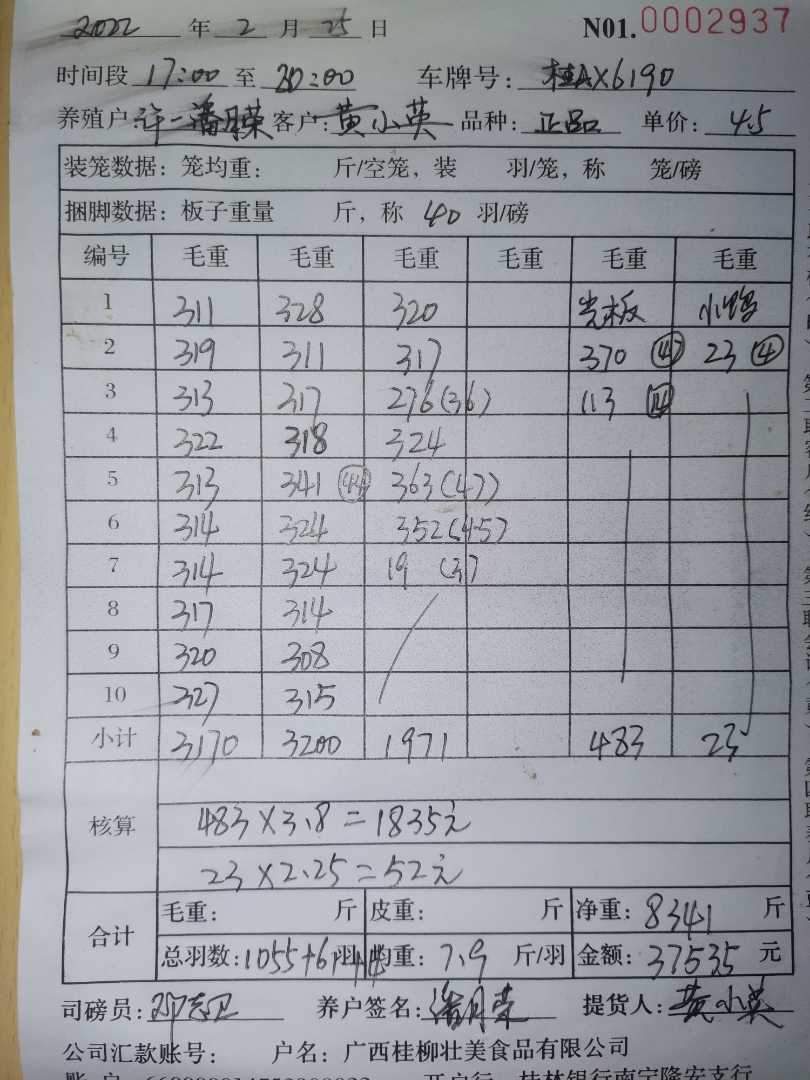 2022 年 2 月 25 日 N01. 0002937
时间段 17:00 至 20:00 车牌号: 桂AX6190
养殖户: 许一潘月荣 客户: 黄小英 品种: 正品 单价: 4.5
装笼数据: 笼均重: 斤/空笼, 装 羽/笼, 称 笼/磅
捆脚数据: 板子重量 斤, 称 40 羽/磅
编号 毛重 毛重 毛重 毛重 毛重 毛重
1 311 328 320 光板 小鸭
2 319 311 317 370 (47) 23 (4)
3 313 317 276(36) 113 (14)
4 322 318 324
5 313 341 (44) 363(47)
6 314 324 352(45)
7 314 324 19 (3)
8 317 314
9 320 308
10 327 315
小计 3170 3200 1971 483 23
核算
483×3.8=1835元
23×2.25=52元
合计
毛重: 斤 皮重: 斤 净重: 8341 斤
总羽数: 1055+61羽+4 均重: 7.9 斤/羽 金额: 37535 元
司磅员: 邓志卫 养户签名: 潘月荣 提货人: 黄小英
公司汇款账号: 户名: 广西桂柳壮美食品有限公司
开户行: 桂林银行南宁隆安支行